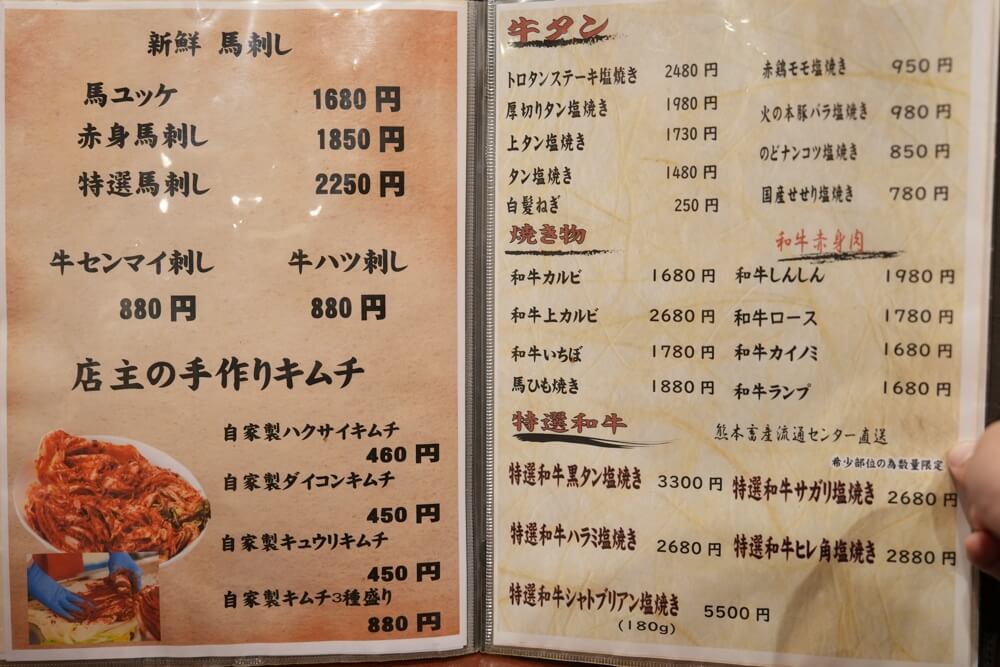 新鮮 馬刺し
馬ユッケ 1680 円
赤身馬刺し 1850 円
特選馬刺し 2250 円
牛センマイ刺し 牛ハツ刺し
880 円 880 円
店主の手作りキムチ
自家製ハクサイキムチ
460 円
自家製ダイコンキムチ
450 円
自家製キュウリキムチ
450 円
自家製キムチ3種盛り
880 円
牛タン
トロタンステーキ塩焼き 2480 円
厚切りタン塩焼き 1980 円
上タン塩焼き 1730 円
タン塩焼き 1480 円
白髪ねぎ 250 円
赤鶏モモ塩焼き 950 円
火の本豚バラ塩焼き 980 円
のどナンコツ塩焼き 850 円
国産せせり塩焼き 780 円
焼き物
和牛カルビ 1680 円
和牛上カルビ 2680 円
和牛いちぼ 1780 円
馬ひも焼き 1880 円
和牛赤身肉
和牛しんしん 1980 円
和牛ロース 1780 円
和牛カイノミ 1680 円
和牛ランプ 1680 円
特選和牛 熊本畜産流通センター直送
希少部位の為数量限定
特選和牛黒タン塩焼き 3300 円
特選和牛サガリ塩焼き 2680 円
特選和牛ハラミ塩焼き 2680 円
特選和牛ヒレ角塩焼き 2880 円
特選和牛シャトブリアン塩焼き 5500 円
(180g)